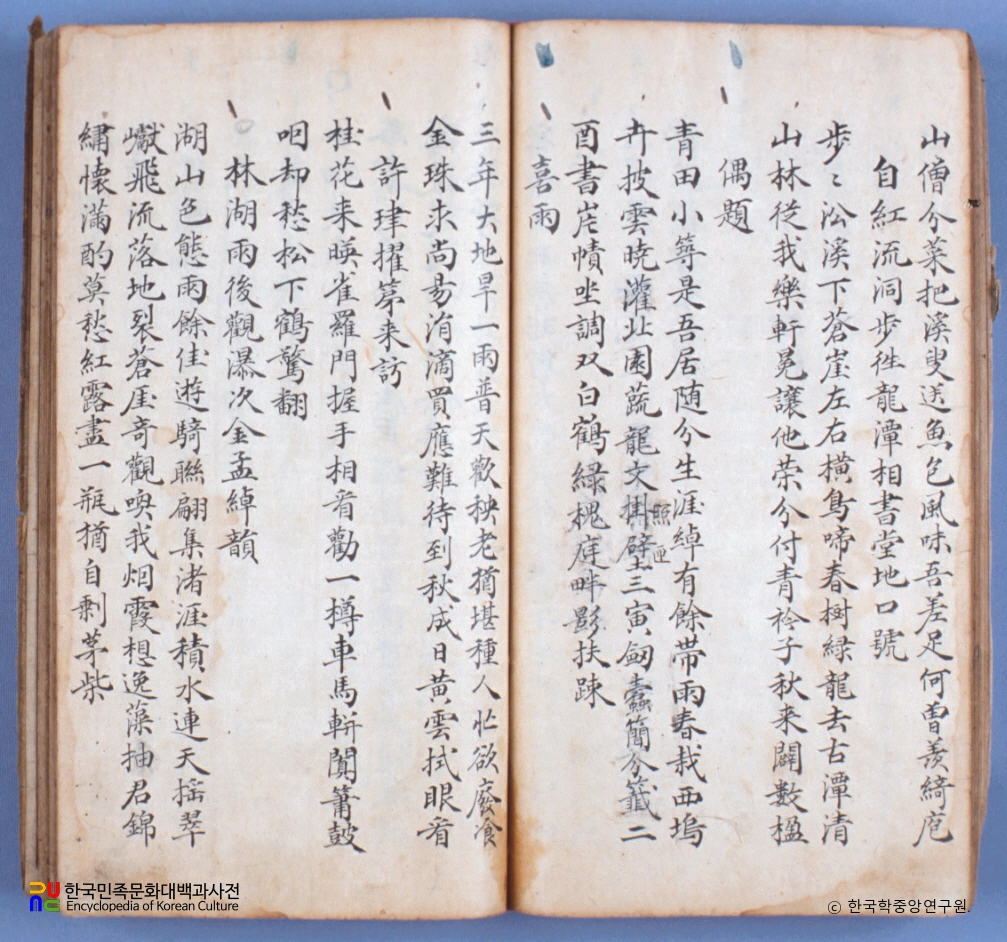 山僧分菜把溪叟送魚包風味吾差足何曾羨綺庖
自紅流洞步徃龍潭相書堂地口號
步〻沿溪下蒼崖左右橫鳥啼春樹綠龍去古潭清
山林從我樂軒冕讓他荣分付青衿子秋来闢数楹
偶題
青田小築是吾居随分生涯綽有餘帶雨春栽西塢
卉披雲曉灌北園蔬龍文掛壁三寅劒蠹簡分籤二
照 匣
酉書岸幘坐調双白鶴綠槐庭畔影扶踈
喜雨
三年大地旱一雨普天歡秧老猶堪種人忙欲廢飡
金珠求尚易涓滴買應難待到秋成日黄雲拭眼看
許珒擢第来訪
桂花来暎雀羅門握手相看勸一樽車馬駢闐簫皷
咽却愁松下鶴驚翻
林湖雨後觀瀑次金孟綽韻
湖山色態雨餘佳遊騎聯翩集渚涯積水連天搖翠
巘飛流落地裂蒼厓奇觀喚我烟霞想逸藻抽君錦
繡懷滿酌莫愁紅露盡一瓶猶自剩茅柴
한국민족문화대백과사전
Encyclopedia of Korean Culture
© 한국학중앙연구원.